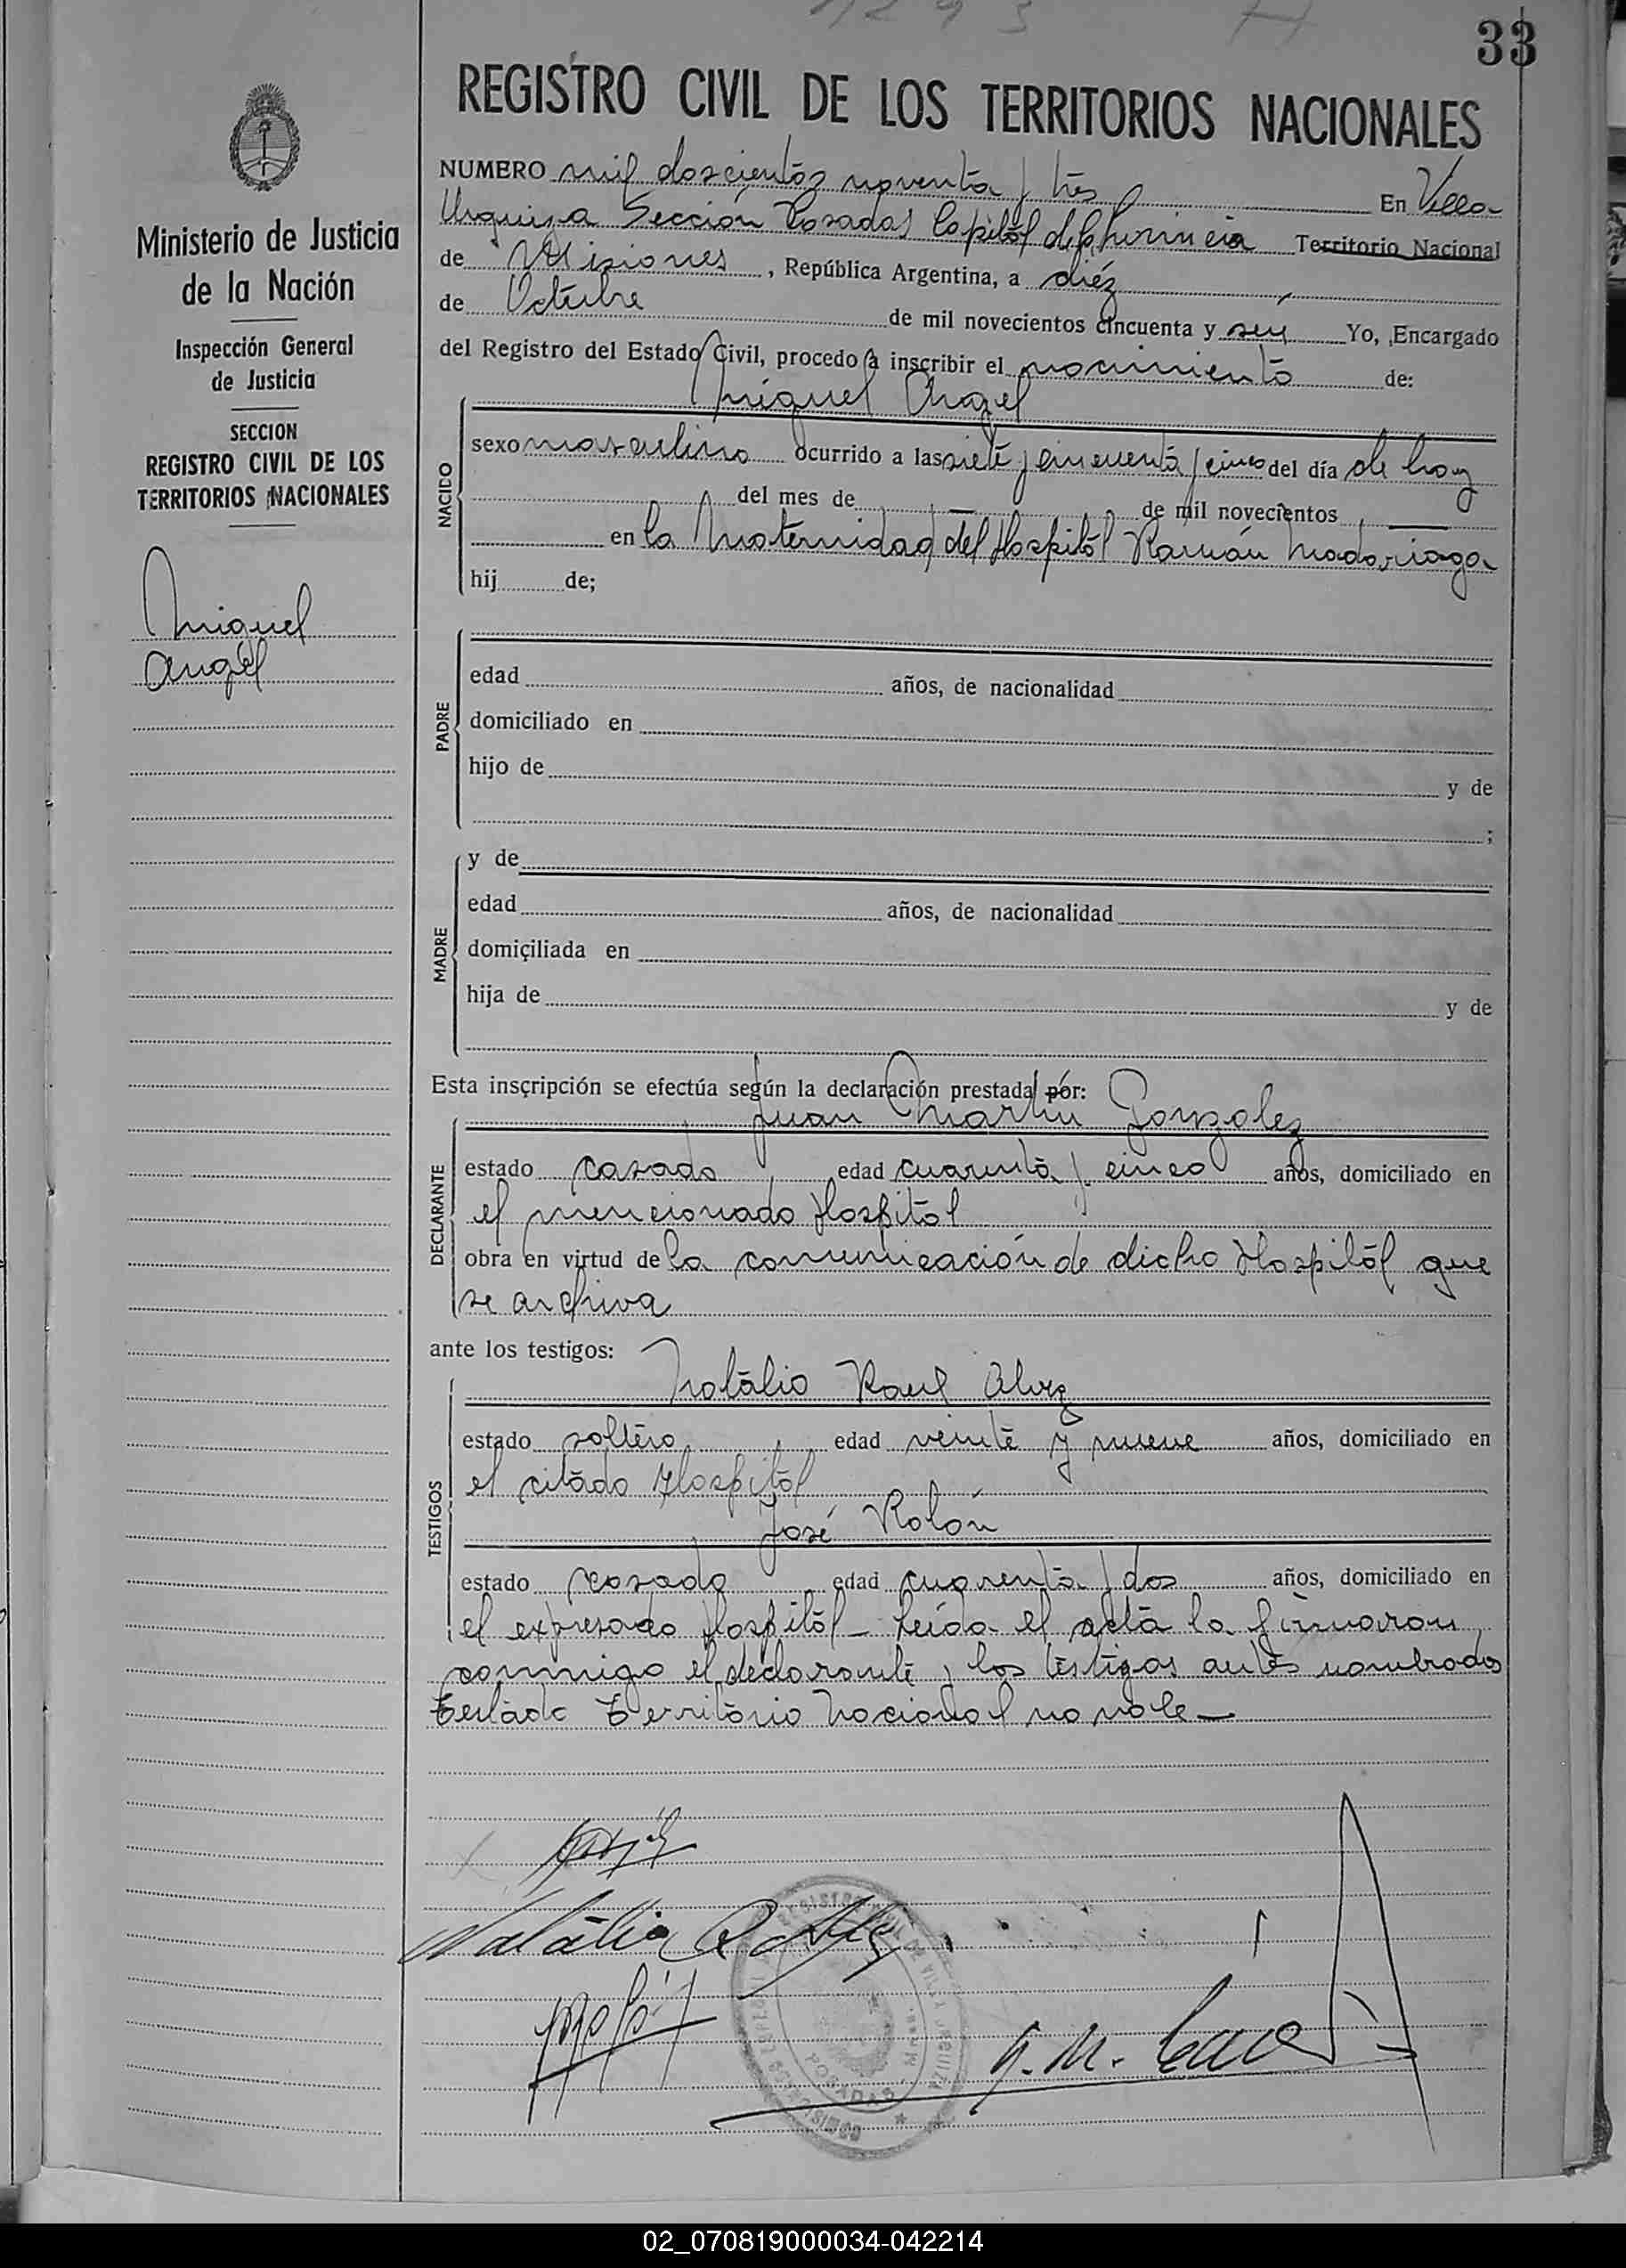 1293
33
REGISTRO CIVIL DE LOS TERRITORIOS NACIONALES
Ministerio de Justicia
de la Nación
Inspección General
de Justicia
SECCION
REGISTRO CIVIL DE LOS
TERRITORIOS NACIONALES
Miguel
Angel
NUMERO mil doscientos noventa y tres En Villa
Urquiza Sección Posadas Capital de la Provincia Territorio Nacional
de Misiones, República Argentina, a diéz
de Octubre de mil novecientos cincuenta y seis Yo, Encargado
del Registro del Estado Civil, procedo a inscribir el nacimiento de:
Miguel Angel
NACIDO
sexo masculino ocurrido a las siete y cincuenta y cinco del día de hoy
del mes de — de mil novecientos —
en la Maternidad del Hospital Ramón Madariaga
hij de;
PADRE
edad años, de nacionalidad
domiciliado en
hijo de y de
;
MADRE
y de
edad años, de nacionalidad
domiciliada en
hija de y de
Esta inscripción se efectúa según la declaración prestada por:
Juan Martin Gonzalez
DECLARANTE
estado casado edad cuarenta y cinco años, domiciliado en
el mencionado Hospital
obra en virtud de la comunicación de dicho Hospital que
se archiva
ante los testigos:
Natalio Raul Alvez
TESTIGOS
estado soltero edad veinte y nueve años, domiciliado en
el citado Hospital
José Rolón
estado casado edad cuarenta y dos años, domiciliado en
el expresado Hospital - Leída el acta la firmaron
conmigo el declarante y los testigos antes nombrados
Testado Territorio Nacional no vale —
Natalio R Alvez
POSADAS
02_070819000034-042214